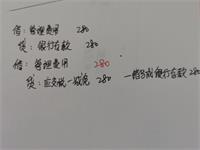 借:管理费用 280
贷:银行存款 280
借:管理费用 280
贷:应交税一减免 280 一借多贷银行存款 280